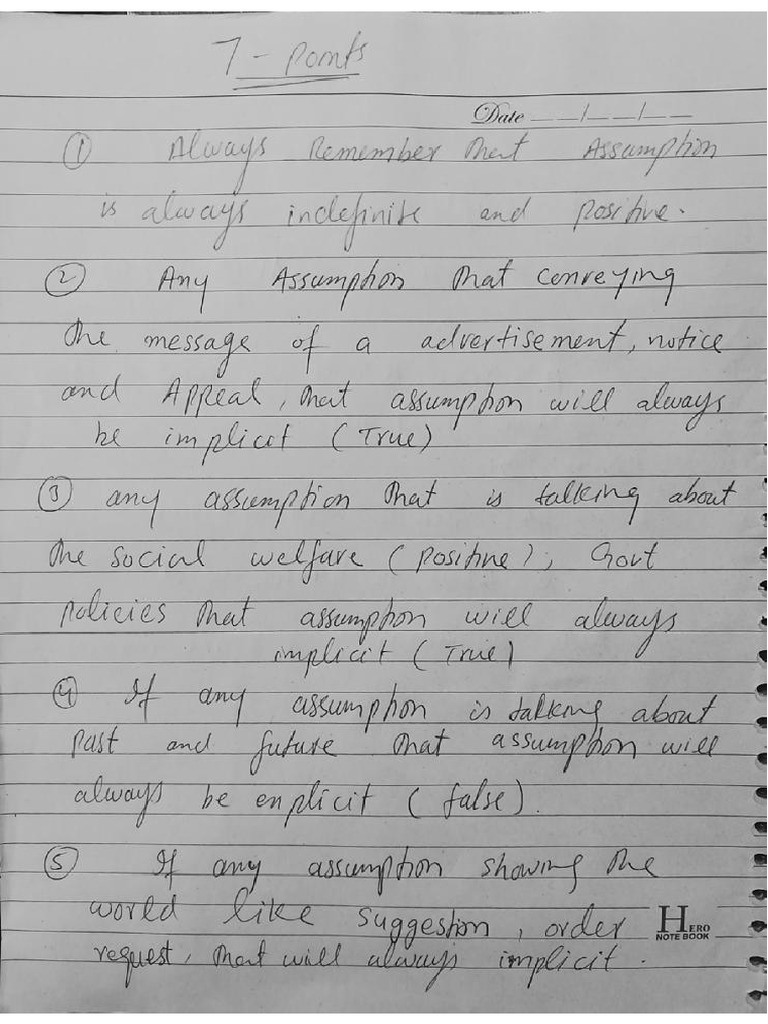 7 - Points
Date __/__/__
① Always Remember that Assumption
is always indefinite and Positive.
② Any Assumption that conveying
the message of a advertisement, notice
and Appeal, that assumption will always
be implicit (True)
③ any assumption that is talking about
the social welfare (positive), Govt
policies that assumption will always
implicit (True)
④ If any assumption is talking about
past and future that assumption will
always be enplicit (false).
⑤ If any assumption showing the
world like suggestion, order
HERO
NOTE BOOK
request, that will always implicit.